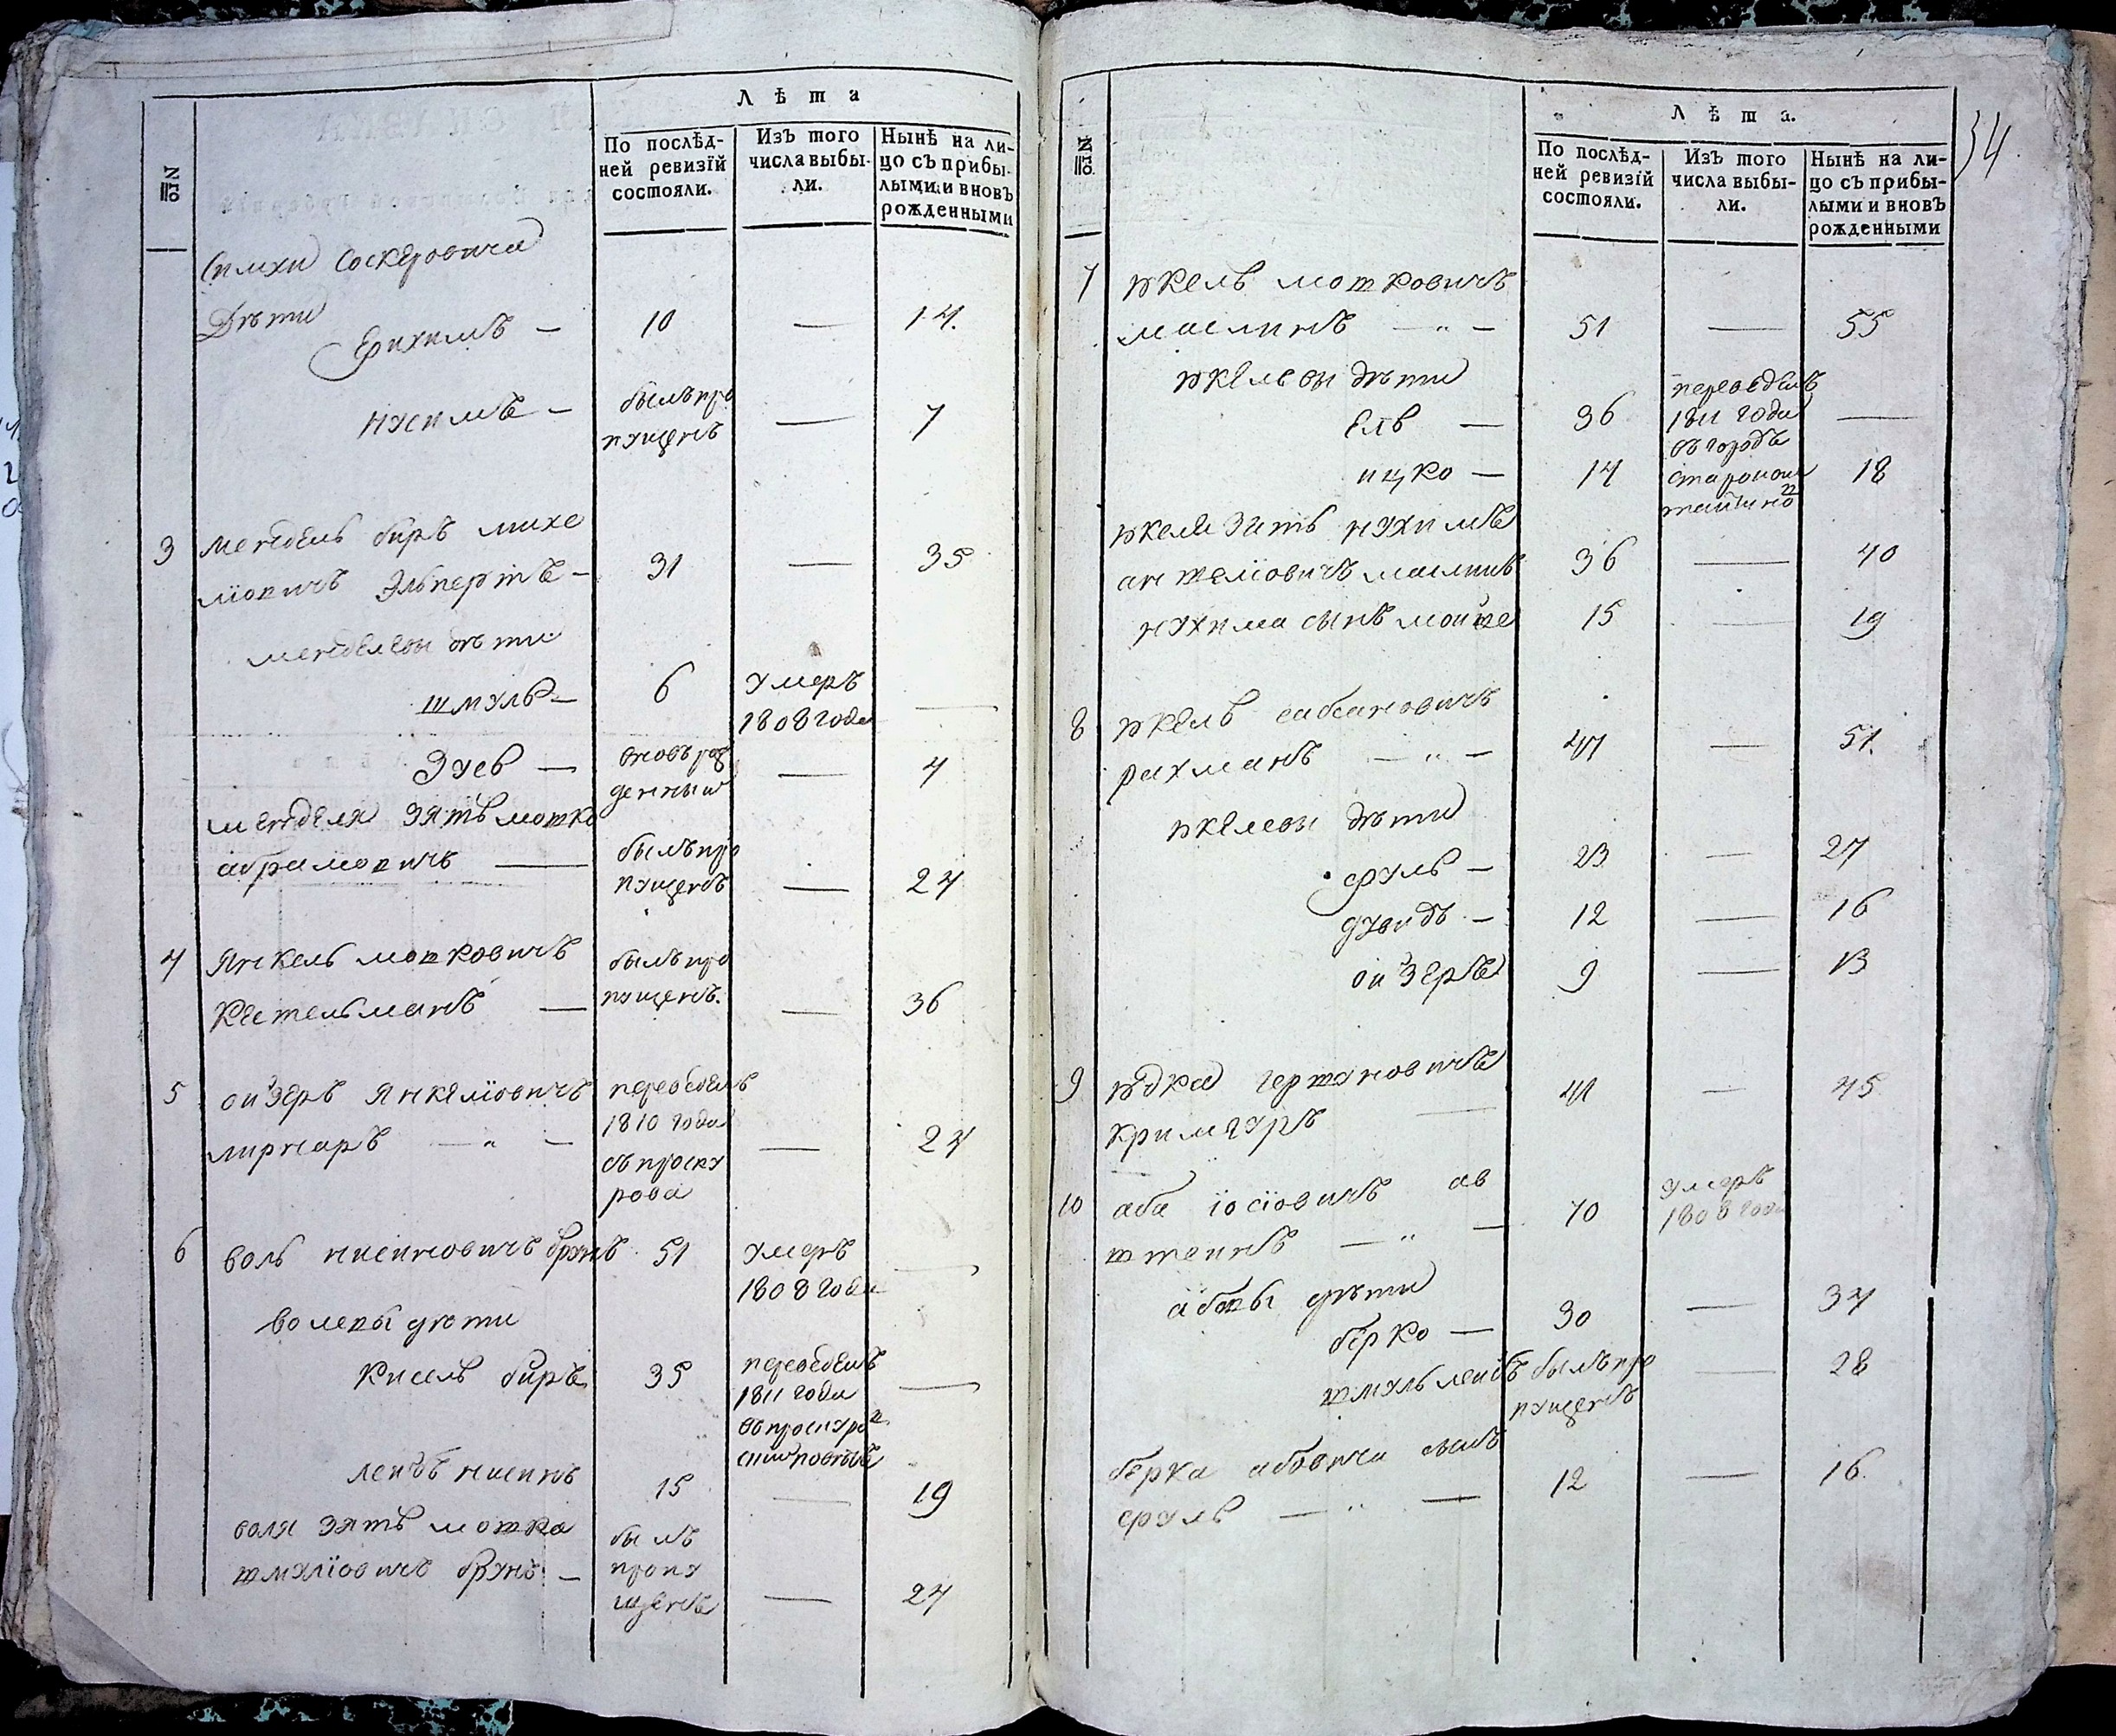 Лѣта
№
По послѣд-
ней ревизїй
состояли.
Изъ того
числа выбы-
ли.
Нынѣ на ли-
цо съ прибы-
лыми и вновъ
рожденными
Симхи
Дѣти
Ерихимъ — 10 — 14.
нусимъ — былъ про
пущенъ — 7
3 мендель бирь михе
лїовичъ Эльпертъ — 31 — 35
менделевы дѣти
шмуль — 6 умеръ
1808 года —
Зусь — вновь рож
денный — 4
менделя зять мошко
абрамовичъ — былъ про
пущенъ — 24
4 Янкель мошковичъ былъ про
Кетельманъ — пущенъ. — 36
5 ойзеръ Янкелїовичъ переведенъ
1810 года
лирнаръ — " — — 24
съ проску
рова
6 воль нисиновичъ брунъ 51 умеръ
1808 года —
волевы дѣти
Кисель биръ 35 переведенъ
1811 года —
лейбъ нисинъ 15 — 19
воля зять мошко былъ
шмулїовичъ брунъ — пропу
щенъ — 24
34.
Лѣта.
№
По послѣд-
ней ревизїй
состояли.
Изъ того
числа выбы-
ли.
Нынѣ на ли-
цо съ прибы-
лыми и вновъ
рожденными
7 шкель мошковичъ
маслинъ — " — 51 — 55
шкелевы дѣти
Ель — 36 переведенъ
1811 года —
въ городъ
ицко — 14 18
шкеля зять нухимъ
аншелїовичъ маслинъ 36 — 40
нухима сынъ мойше 15 — 19
8 шкель
рахманъ — " — 47 — 51.
шкелевы дѣти
сруль — 23 — 27
дувидъ — 12 — 16
ойзеръ 9 — 13
9
кримгуръ 41 — 45
10 аба їосїовичъ ав
штеинъ — " — 70 умеръ
1808 года
абовы дѣти
берко — 30 — 34
шмуль лейбъ былъ про
пущенъ — 28
берка абовича сынъ
сруль — " — 12 — 16.